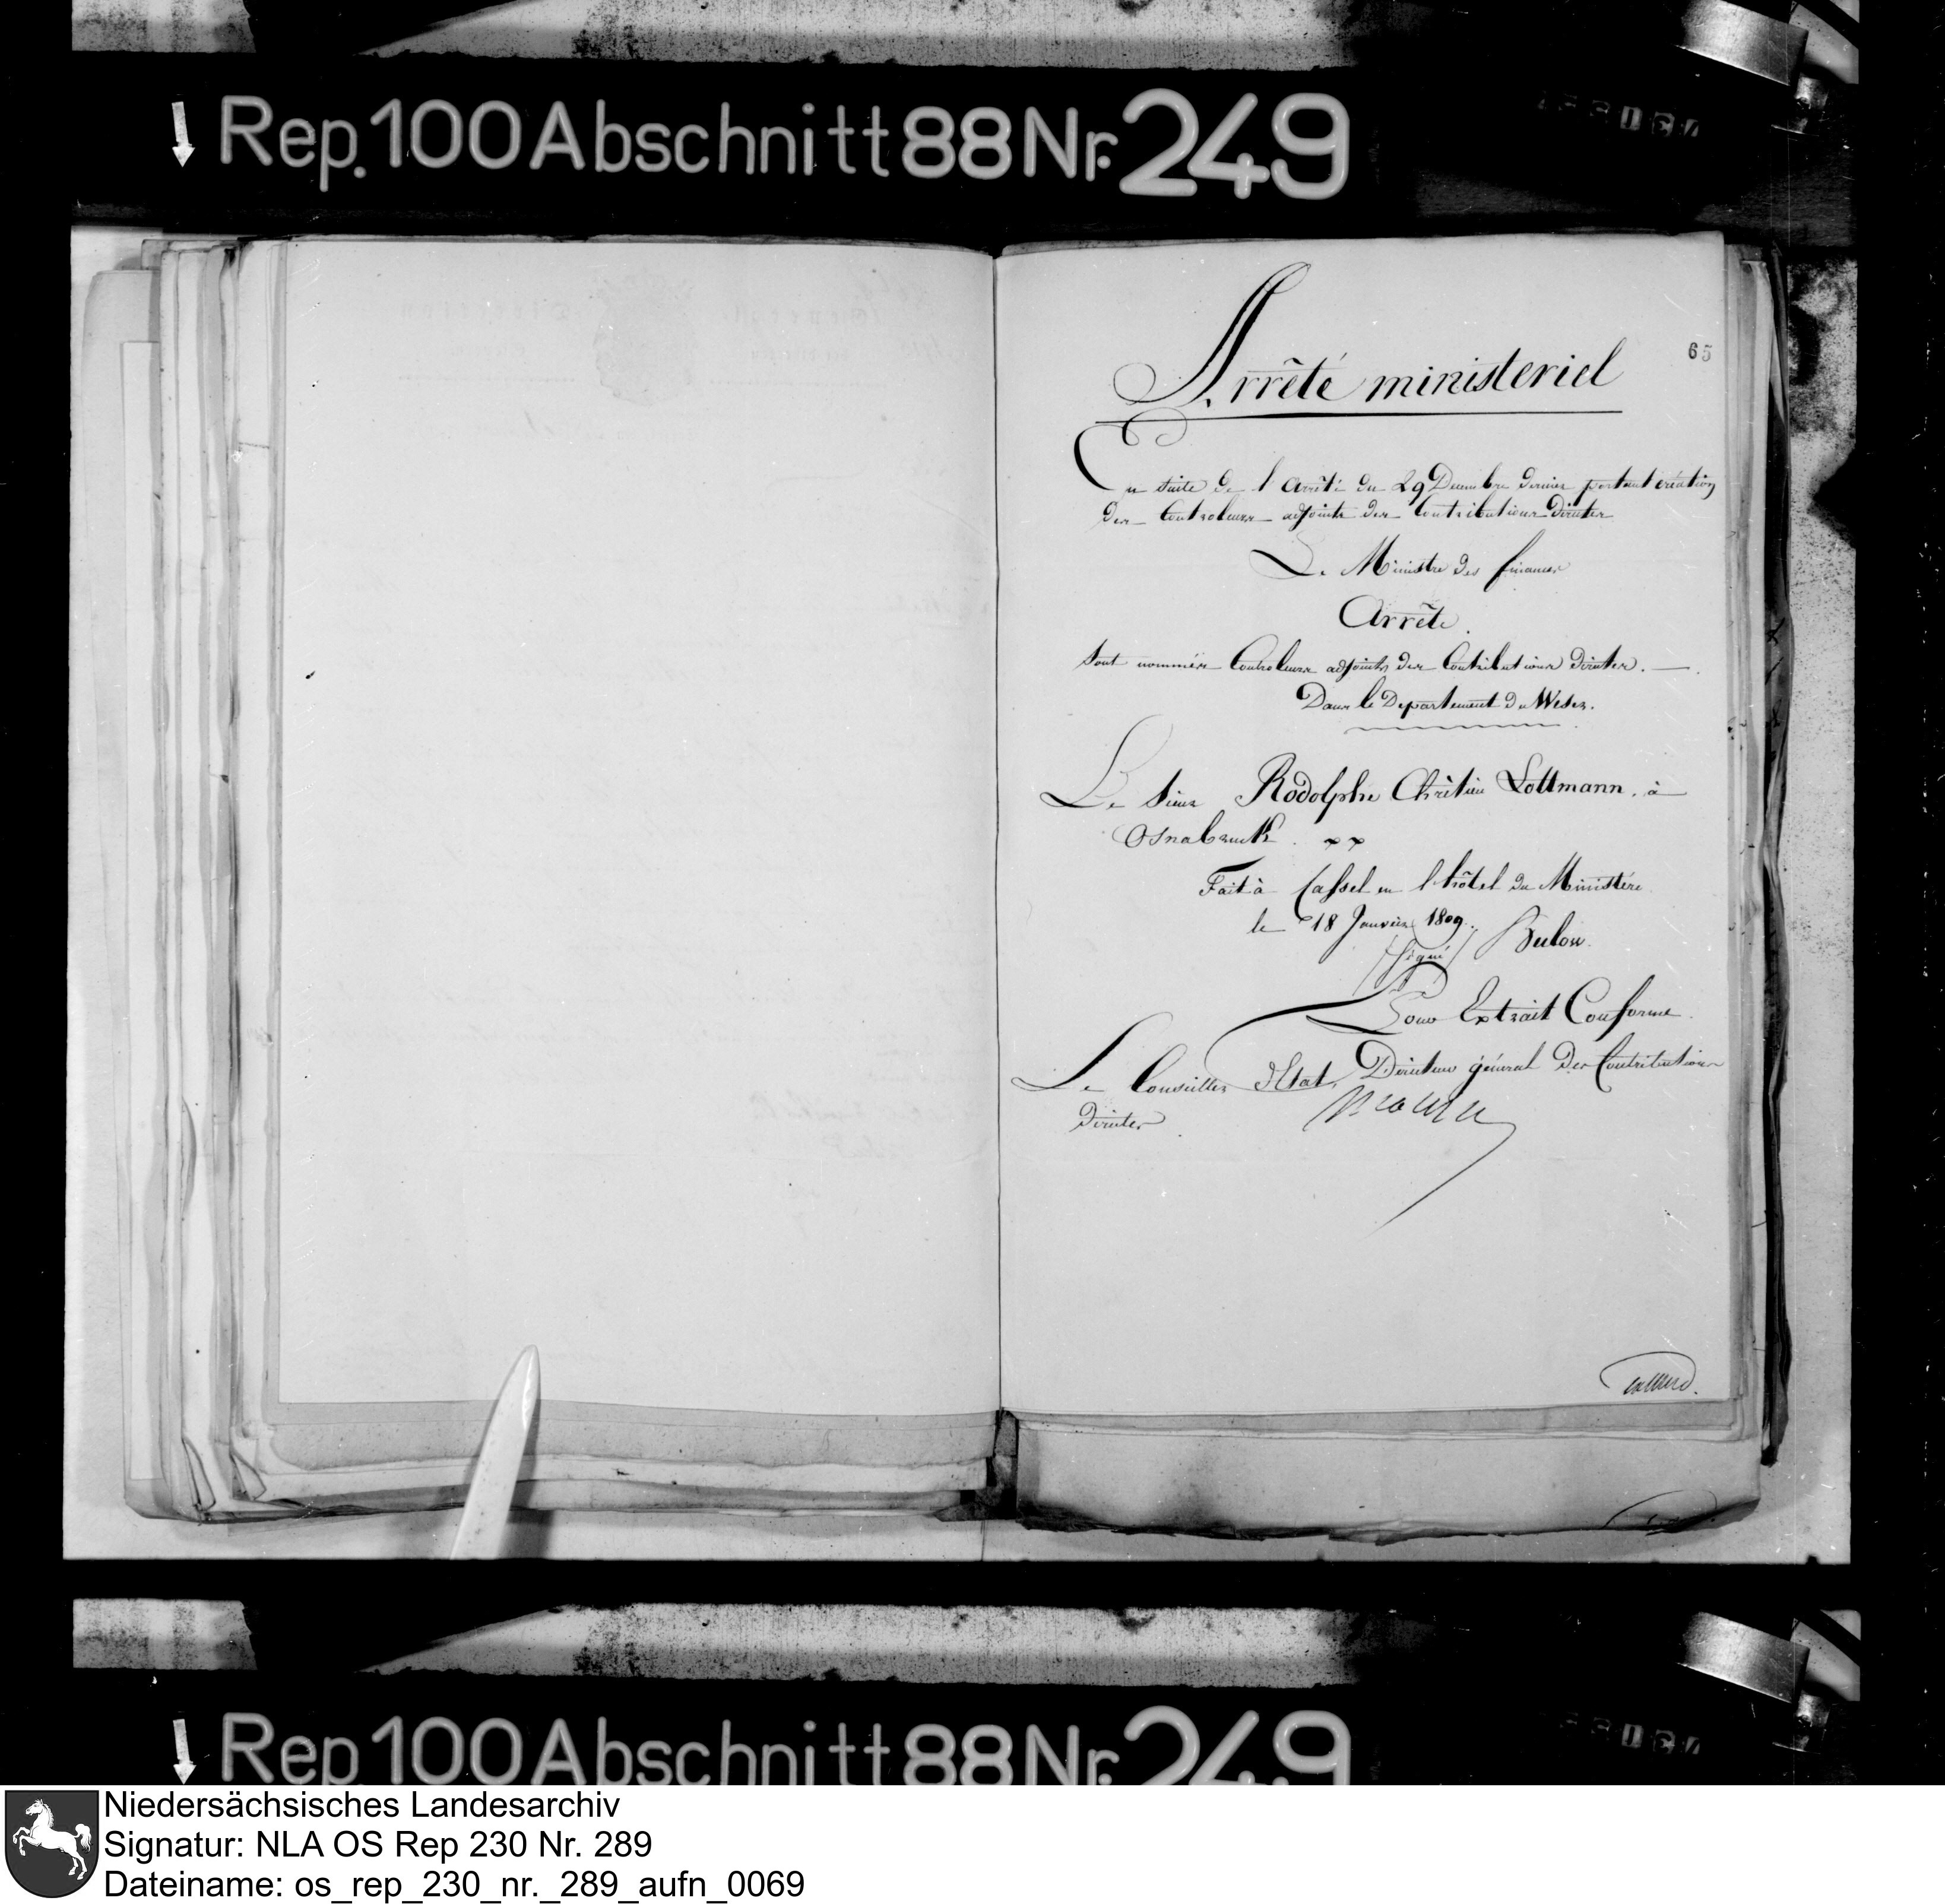 Rep. 100 Abschnitt 88 Nr. 249
65
Arrêté ministeriel
En suite de l'Arrêté du 29 Decembre dernier portant création
des Controleurs adjoints des Contributions directes
Le Ministre des finances
Arrête.
Sont nommés Controleurs adjoints des Contributions directes. —
Dans le Departement du Weser.
Le Sieur Rodolphe Chrètien Lottmann, à
Osnabruck.
Fait à Cassel en l'hôtel du Ministére
le 18 Janvier 1809.
/signé/ Bulow.
Pour Extrait Conforme.
Le Conseiller d'Etat, Directeur général des Contributions
directes.
Rep. 100 Abschnitt 88 Nr. 249
Niedersächsisches Landesarchiv
Signatur: NLA OS Rep 230 Nr. 289
Dateiname: os_rep_230_nr._289_aufn_0069